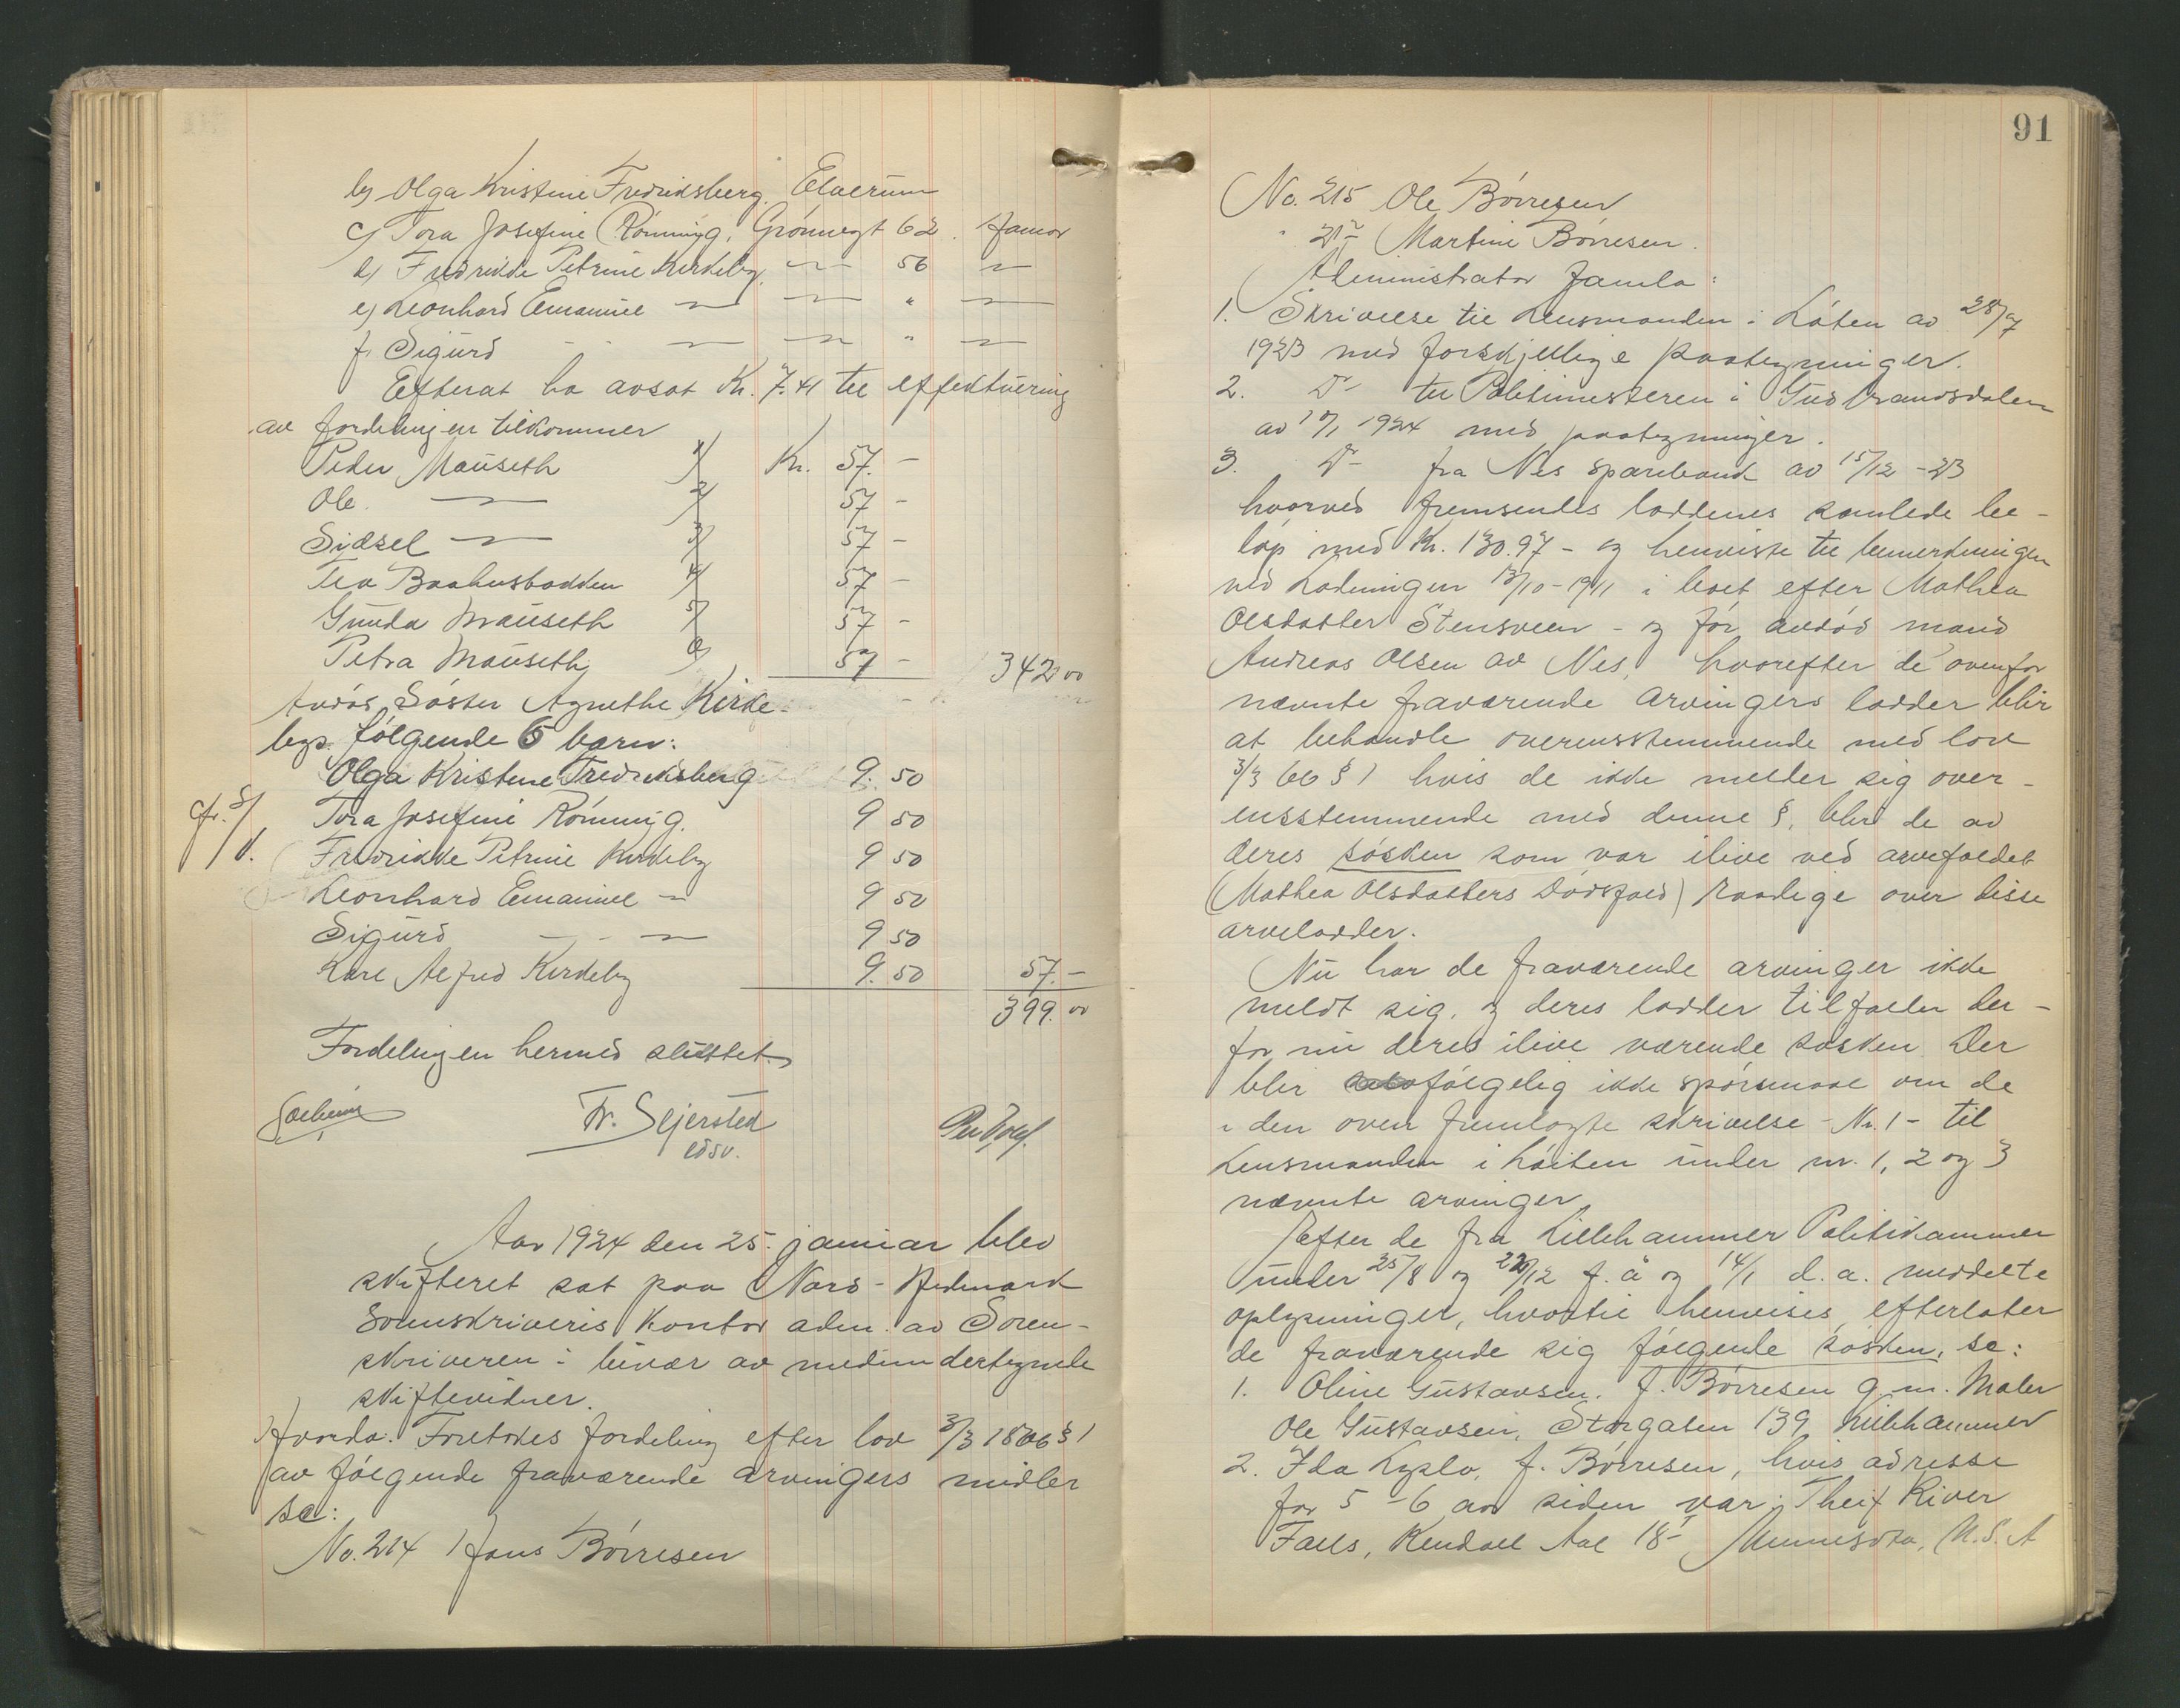 b) Olga Kristine Fredriksberg, Elverum
c) Tora Josefine Rønning, Grønnegt 62. Hamar
d) Fredrikke Petrine Kirkeby, — 56 —
e) Leonhard Emanuel — — " —
f. Sigurd — — " —
Efterat ha avsat Kr. 7.41 til effektuering
av fordelingen tilkommer
Peder Mauseth 1/ Kr. 57. -
Ole — 2/ 57 -
Sidsel — 3/ 57 -
Tea Baahusbakken 4/ 57 -
Gunda Mauseth 5/ 57 -
Petra Mauseth 6/ 57 - 342 00
Avdøs Søster Agnethe Kirke-
bys følgende 6 barn:
Olga Kristine Fredriksberg 9. 50
Tora Josefine Rønning. 9 50
Fredrikke Petrine Kirkeby 9 50
Leonhard Emanuel — 9 50
Sigurd — 9 50
Karl Alfred Kirkeby 9. 50 57. -
399. 00
Fordelingen hermed sluttet.
Fr. Sejersted
edsv.
Aar 1924 den 25. januar blev
skifteret sat paa Nord-Hedmark
Sorenskriveris kontor adm. av Soren-
skriveren i nævær av medundertegnede
skiftevidner.
Hvorda: Foretokes fordeling efter lov 3/3 1866 § 1
av følgende fraværende arvingers midler
sc:
No. 214 Hans Børresen
91
No. 215 Ole Børresen
" 217 Martin Børresen.
Administrator fremla:
1. Skrivelse til Lensmanden i Løten av 28/7
1923 med forskjellige paategninger.
2. Do til Politimesteren i Gudbrandsdalen
av 1924 med paategninger.
3. Do fra Nes sparebank av 15/12 - 23
hvorved fremsendes loddenes samlede be-
løp med Kr. 130.97 - og henviste til bemerkningen
ved Lodningen 13/10 - 19/11 i boet efter Mathea
Olsdatter Stensveen - og før avdød mand
Andreas Olsen av Nes, hvorefter de ovenfor
nævnte fraværende arvingers lodder blir
at behandle overensstemmende med lov
3/3 66 § 1 hvis de ikke melder sig over-
ensstemmende med denne §, blir de av
deres søsken som var ilive ved arvefaldet
(Mathea Olsdatters Dødsfald) raadige over disse
arvelodder.
Nu har de fraværende arvinger ikke
meldt sig, og deres lodder tilfaller der-
for nu deres ilive værende søsken. Der
blir følgelig ikke spørsmaal om de
i den oven fremlagte skrivelse - Nr. 1 - til
Lensmanden i Løiten under nr. 1, 2 og 3
nævnte arvinger.
Efter de fra Lillehammer Politikammer
under 25/8 og 22/12 f. å og 14/1 d. a. meddelte
oplysninger, hvortil henvises, efterlater
de fraværende sig følgende søsken, sc:
1. Oline Gustavsen, f. Børresen g. m. Maler
Ole Gustavsen, Storgaten 139 Lillehammer
2. Ida Lyslo, f. Børresen, hvis adresse
for 5 - 6 aar siden var: Theif River
Falls, Kendall Aal 18 - Minnesota, U. S. A